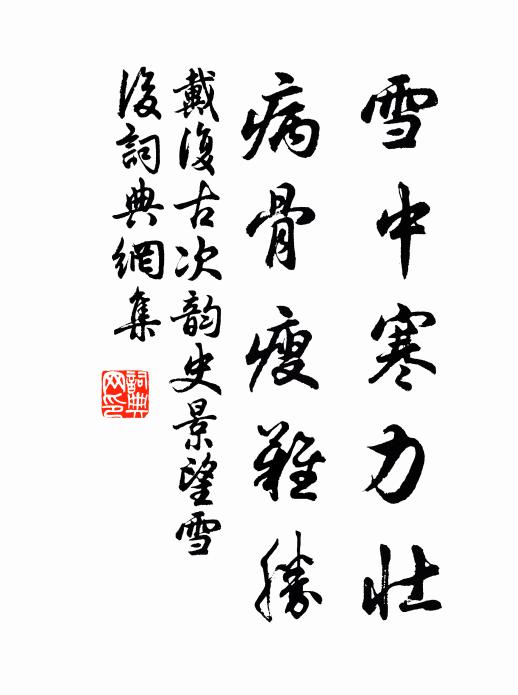 雪中寒力壮
病骨瘦難勝
戴復古次韵史景望雪
後詞典網集
詞典网印